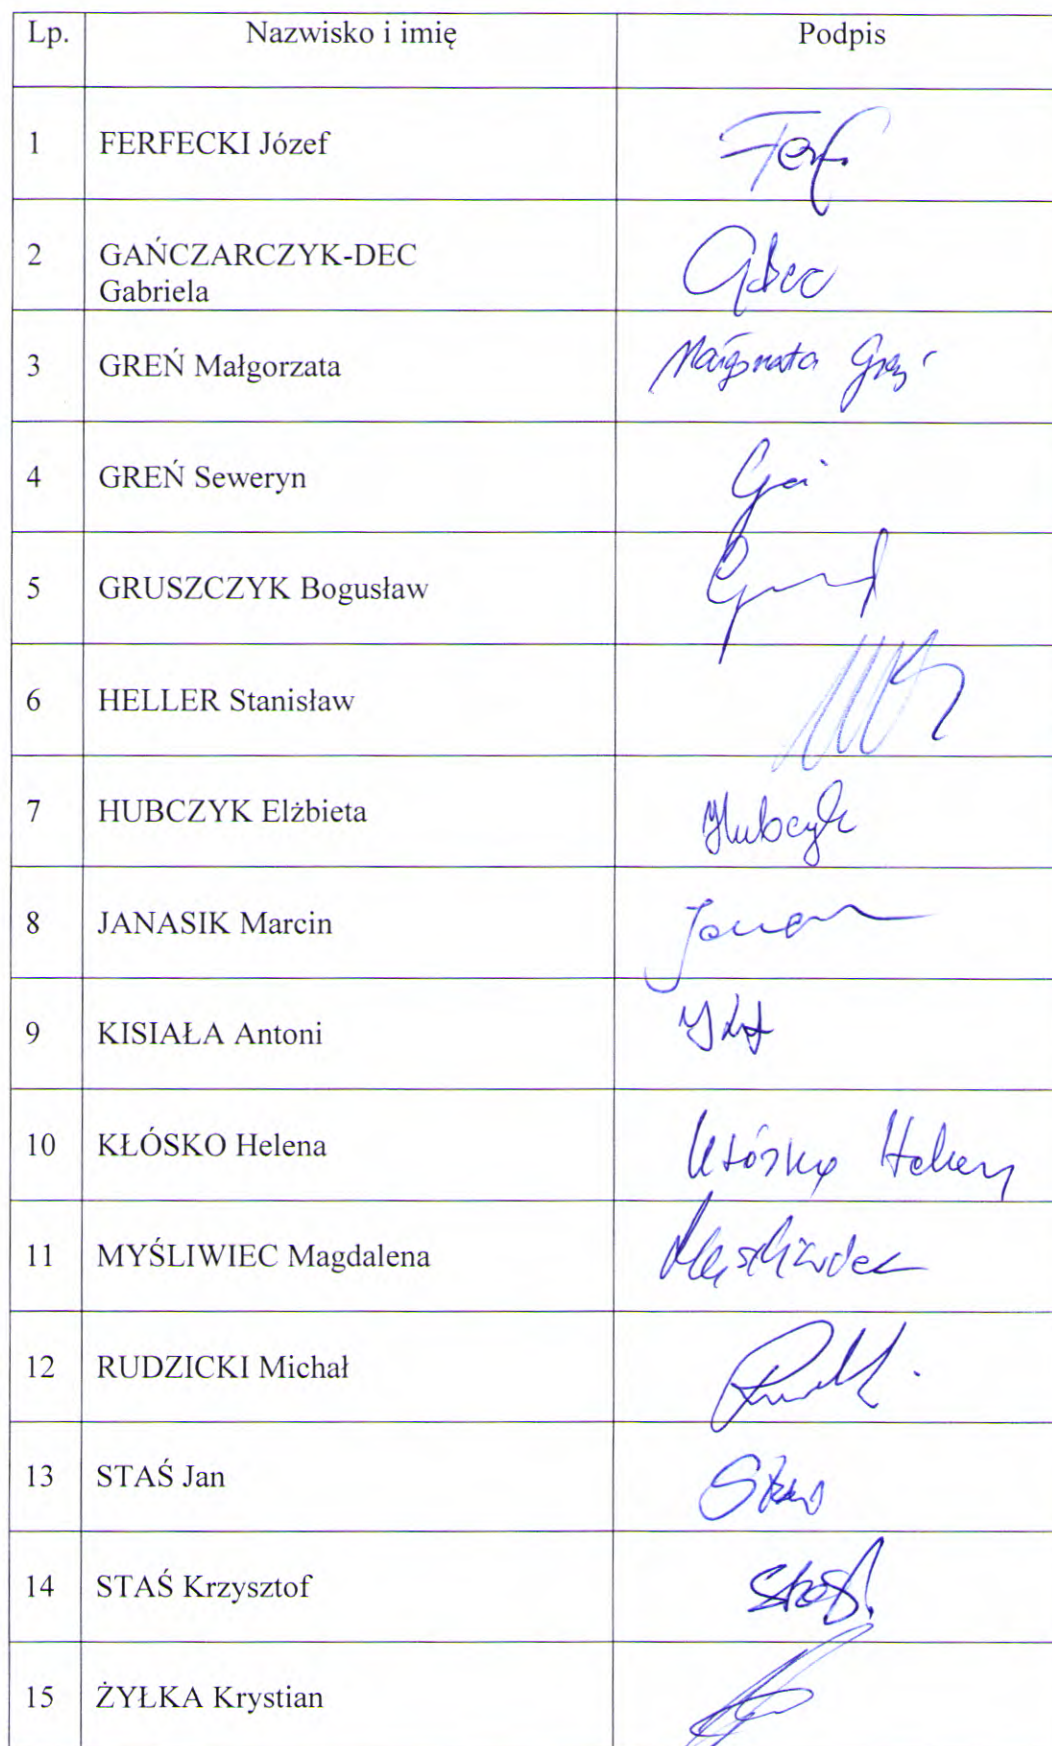 Lp. Nazwisko i imię Podpis
1 FERFECKI Józef Ferf.
2 GAŃCZARCZYK-DEC GDec
Gabriela
3 GREŃ Małgorzata Małgorzata Greń
4 GREŃ Seweryn
5 GRUSZCZYK Bogusław
6 HELLER Stanisław
7 HUBCZYK Elżbieta Hubczyk
8 JANASIK Marcin
9 KISIAŁA Antoni
10 KŁÓSKO Helena Kłósko Helena
11 MYŚLIWIEC Magdalena Myśliwiec
12 RUDZICKI Michał
13 STAŚ Jan
14 STAŚ Krzysztof
15 ŻYŁKA Krystian